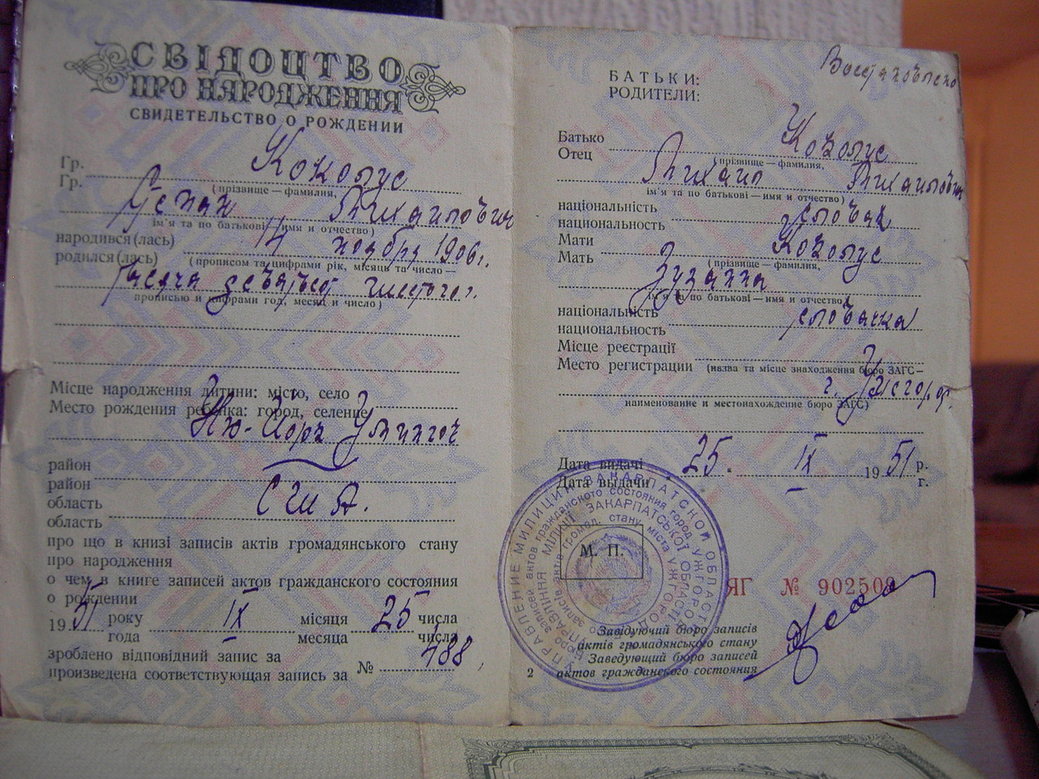 СВІДОЦТВО
ПРО НАРОДЖЕННЯ
СВИДЕТЕЛЬСТВО О РОЖДЕНИИ
Гр. Коколус
Гр.
(прізвище — фамилия,
Степан Михайлович
ім'я та по батькові (имя и отчество)
народився(лась) 14 ноября 1906г.
родился(лась) (прописом та цифрами рік, місяць та число —
Тысяча девятьсот шестого г.
прописью и цифрами год, месяц и число)
Місце народження дитини: місто, село
Место рождения ребёнка: город, селение
Нью-Йорк
район
район
область США.
область
про що в книзі записів актів громадянського стану
про народження
о чем в книге записей актов гражданского состояния
о рождении
1951 року IX місяця 25 числа
года месяца числа
зроблено відповідний запис за
произведена соответствующая запись за № 488
БАТЬКИ:
РОДИТЕЛИ:
Восстановлено
Батько Коколус
Отец
(прізвище — фамилия,
Михаил Михайлович
ім'я та по батькові — имя и отчество)
національність словак
национальность
Мати Коколус
Мать
(прізвище — фамилия,
Зузанна
ім'я та по батькові — имя и отчество)
національність словачка
национальность
Місце реєстрації
Место регистрации (назва та місце знаходження бюро ЗАГС —
г. Ужгород
наименование и местонахождение бюро ЗАГС)
Дата видачі 25. IX 1951 р.
Дата выдачи г.
М. П.
УПРАВЛЕНИЕ МИЛИЦИИ ЗАКАРПАТСКОЙ ОБЛАСТИ
УПРАВЛІННЯ МІЛІЦІЇ ЗАКАРПАТСЬКОЇ ОБЛАСТІ
ЯГ № 902509
Завідуючий бюро записів
актів громадянського стану
Заведующий бюро записей
актов гражданского состояния
2